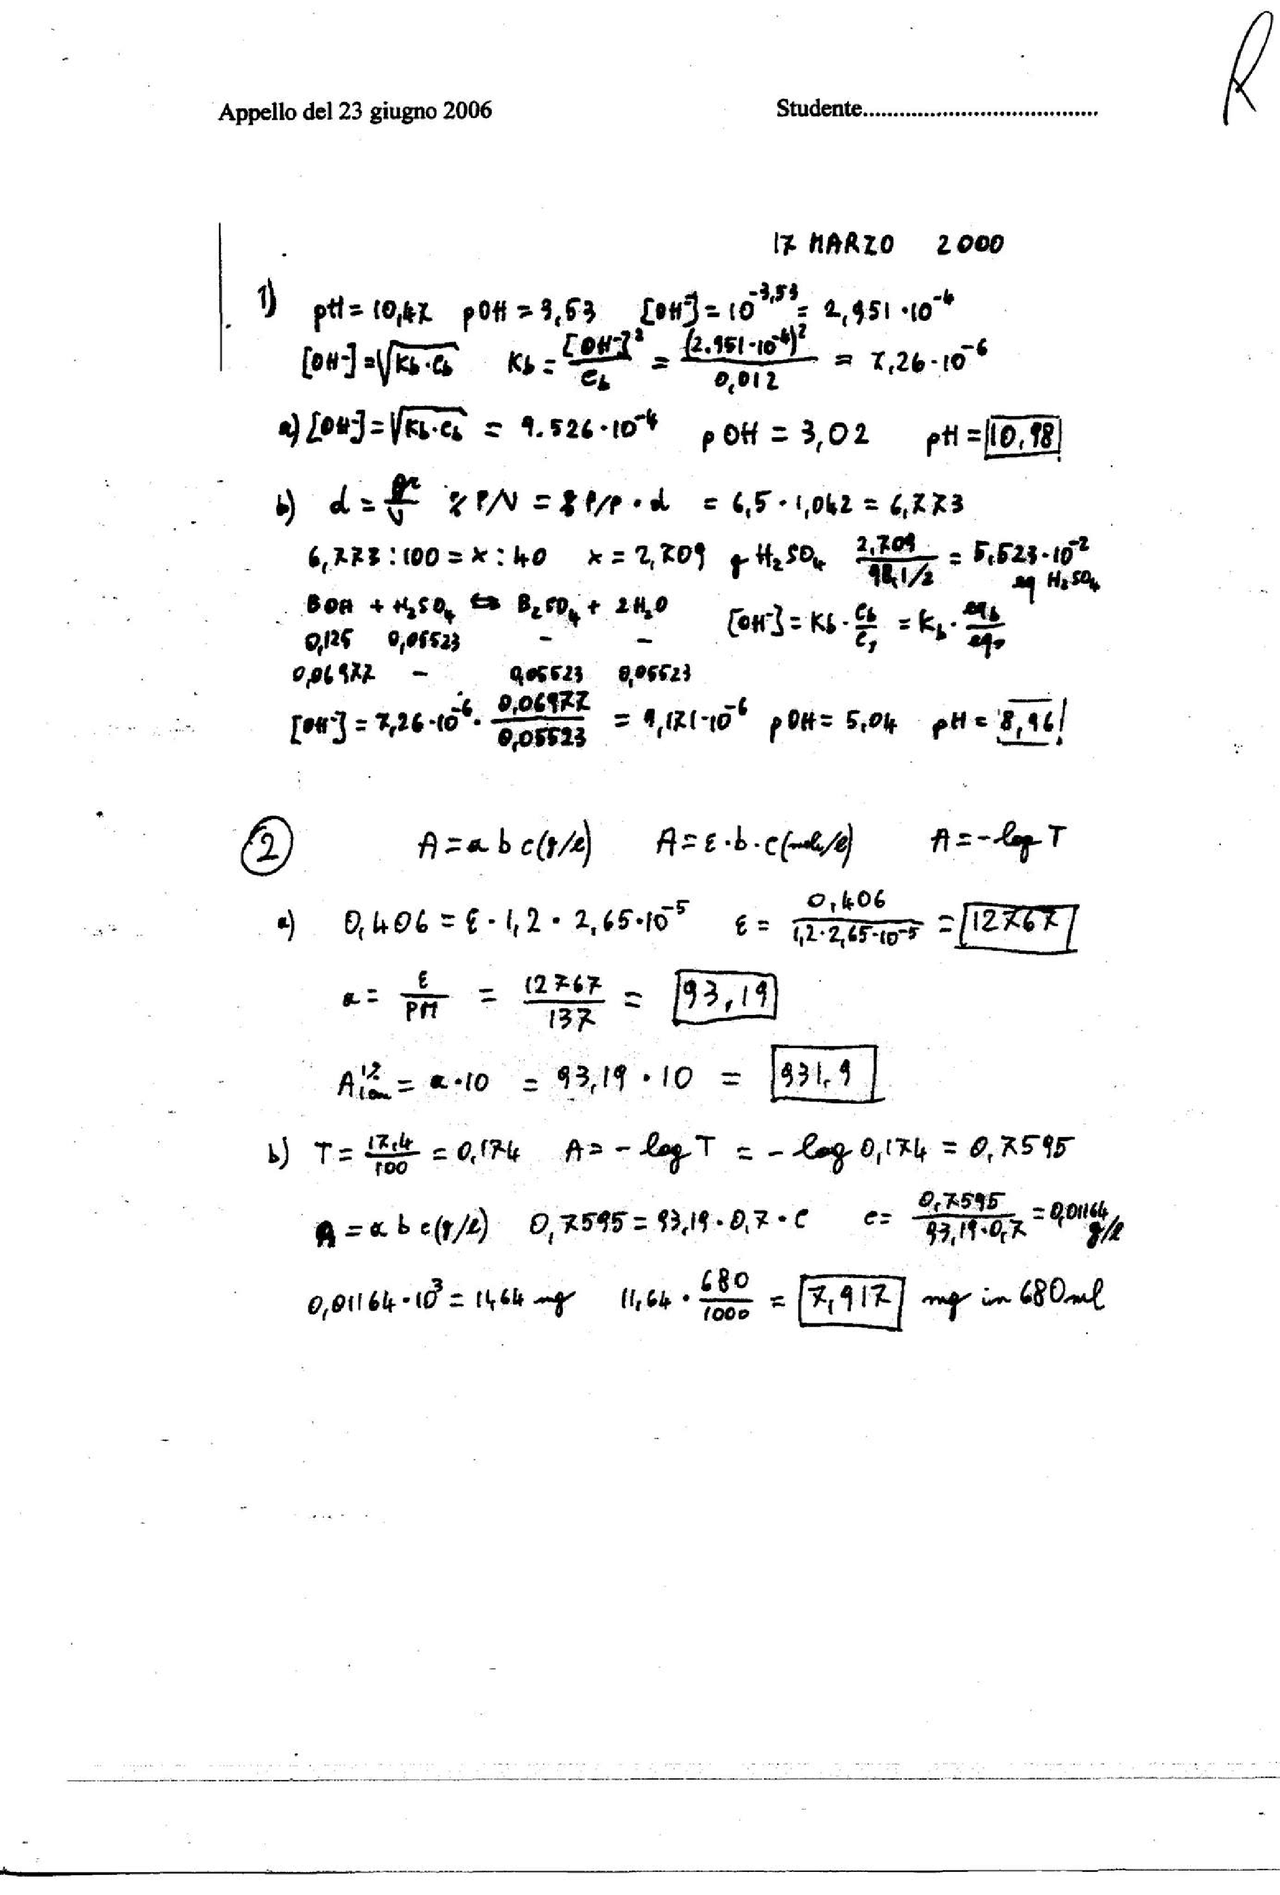 R
Appello del 23 giugno 2006 Studente......................................
17 MARZO 2000
1) pH = 10,47 pOH = 3,53 [OH⁻] = 10^-3,53 = 2,951 · 10^-4
[OH⁻] = √Kb·Cb Kb = [OH⁻]² / Cb = (2.951·10^-4)² / 0,012 = 7,26·10^-6
a) [OH⁻] = √Kb·Cb = 9.526·10^-4 pOH = 3,02 pH = 10,98
b) d = gr/V % P/V = % P/P · d = 6,5 · 1,042 = 6,773
6,773 : 100 = x : 40 x = 2,709 g H₂SO₄ 2,709 / 98,1/2 = 5,523·10^-2 eq H₂SO₄
BOH + H₂SO₄ ⇆ B₂SO₄ + 2H₂O [OH⁻] = Kb · Cb/Cs = Kb · eqb/eqs
0,125 0,05523 - -
0,06977 - 0,05523 0,05523
[OH⁻] = 7,26·10^-6 · 0,06977 / 0,05523 = 9,171·10^-6 pOH = 5,04 pH = 8,96
2 A = a b c (g/l) A = ε · b · c (mole/l) A = - log T
a) 0,406 = ε · 1,2 · 2,65·10^-5 ε = 0,406 / 1,2·2,65·10^-5 = 12767
a = ε / PM = 12767 / 137 = 93,19
A 1% 1cm = a·10 = 93,19 · 10 = 931,9
b) T = 17,4 / 100 = 0,174 A = - log T = - log 0,174 = 0,7595
A = a b c (g/l) 0,7595 = 93,19 · 0,7 · c c = 0,7595 / 93,19·0,7 = 0,01164 g/l
0,01164 · 10³ = 11,64 mg 11,64 · 680 / 1000 = 7,917 mg in 680 ml